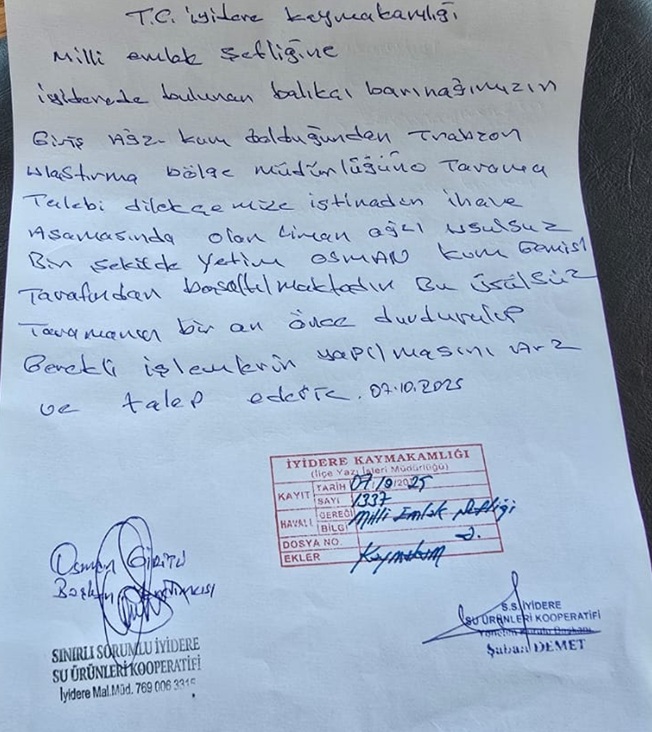 T.C. iyidere kaymakamlığı
Milli emlak Şefliğine
iyiderede bulunan balıkçı barınağımızın
Giriş Ağzı kum dolduğundan Trabzon
ulaştırma bölge müdürlüğüne Tarama
Talebi dilekçemize iştinaden ihave
Asamasında olan Liman ağzı usulsuz
Bir şekilde Yetim OSMAN kum Gemisi
Tarafından başaltılmaktadır. Bu üsülsüz
Taramanın bir an önce durdurulup
Gerekli işlemlerin yapılmasını Arz
ve talep ederiz. 07.10.2025
İYİDERE KAYMAKAMLIĞI
(İlçe Yazı İşleri Müdürlüğü)
KAYIT TARİH 07/10/2025
SAYI 1337
HAVALE GEREĞİ Milli Emlak Şefliği
BİLGİ
DOSYA NO.
EKLER Kaymakam
Osman
Başkan Yardımcısı
SINIRLI SORUMLU İYİDERE
SU ÜRÜNLERİ KOOPERATİFİ
İyidere Mal.Müd. 769 006 3315
S.S. İYİDERE
SU ÜRÜNLERİ KOOPERATİFİ
Yönetim Kurulu Başkanı
Şaban DEMET